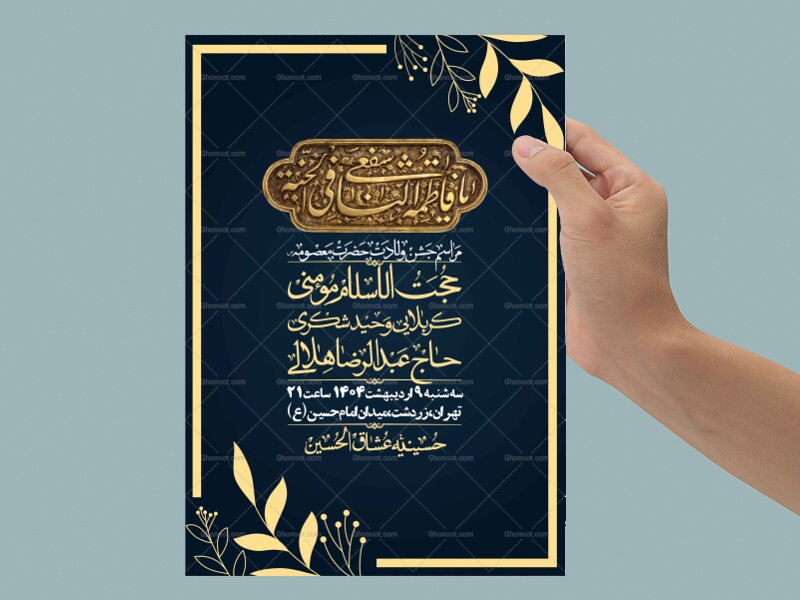 یا فاطمة اشفعی لی فی الجنة
مراسم جشن ولادت حضرت معصومه
حجت الاسلام مومنی
کربلایی وحید شکری
حاج عبدالرضا هلالی
سه شنبه ۹ اردیبهشت ۱۴۰۴ ساعت ۲۱
تهران، زردشت، میدان امام حسین (ع)
حسینیه عشاق الحسین
Ghonoot.com